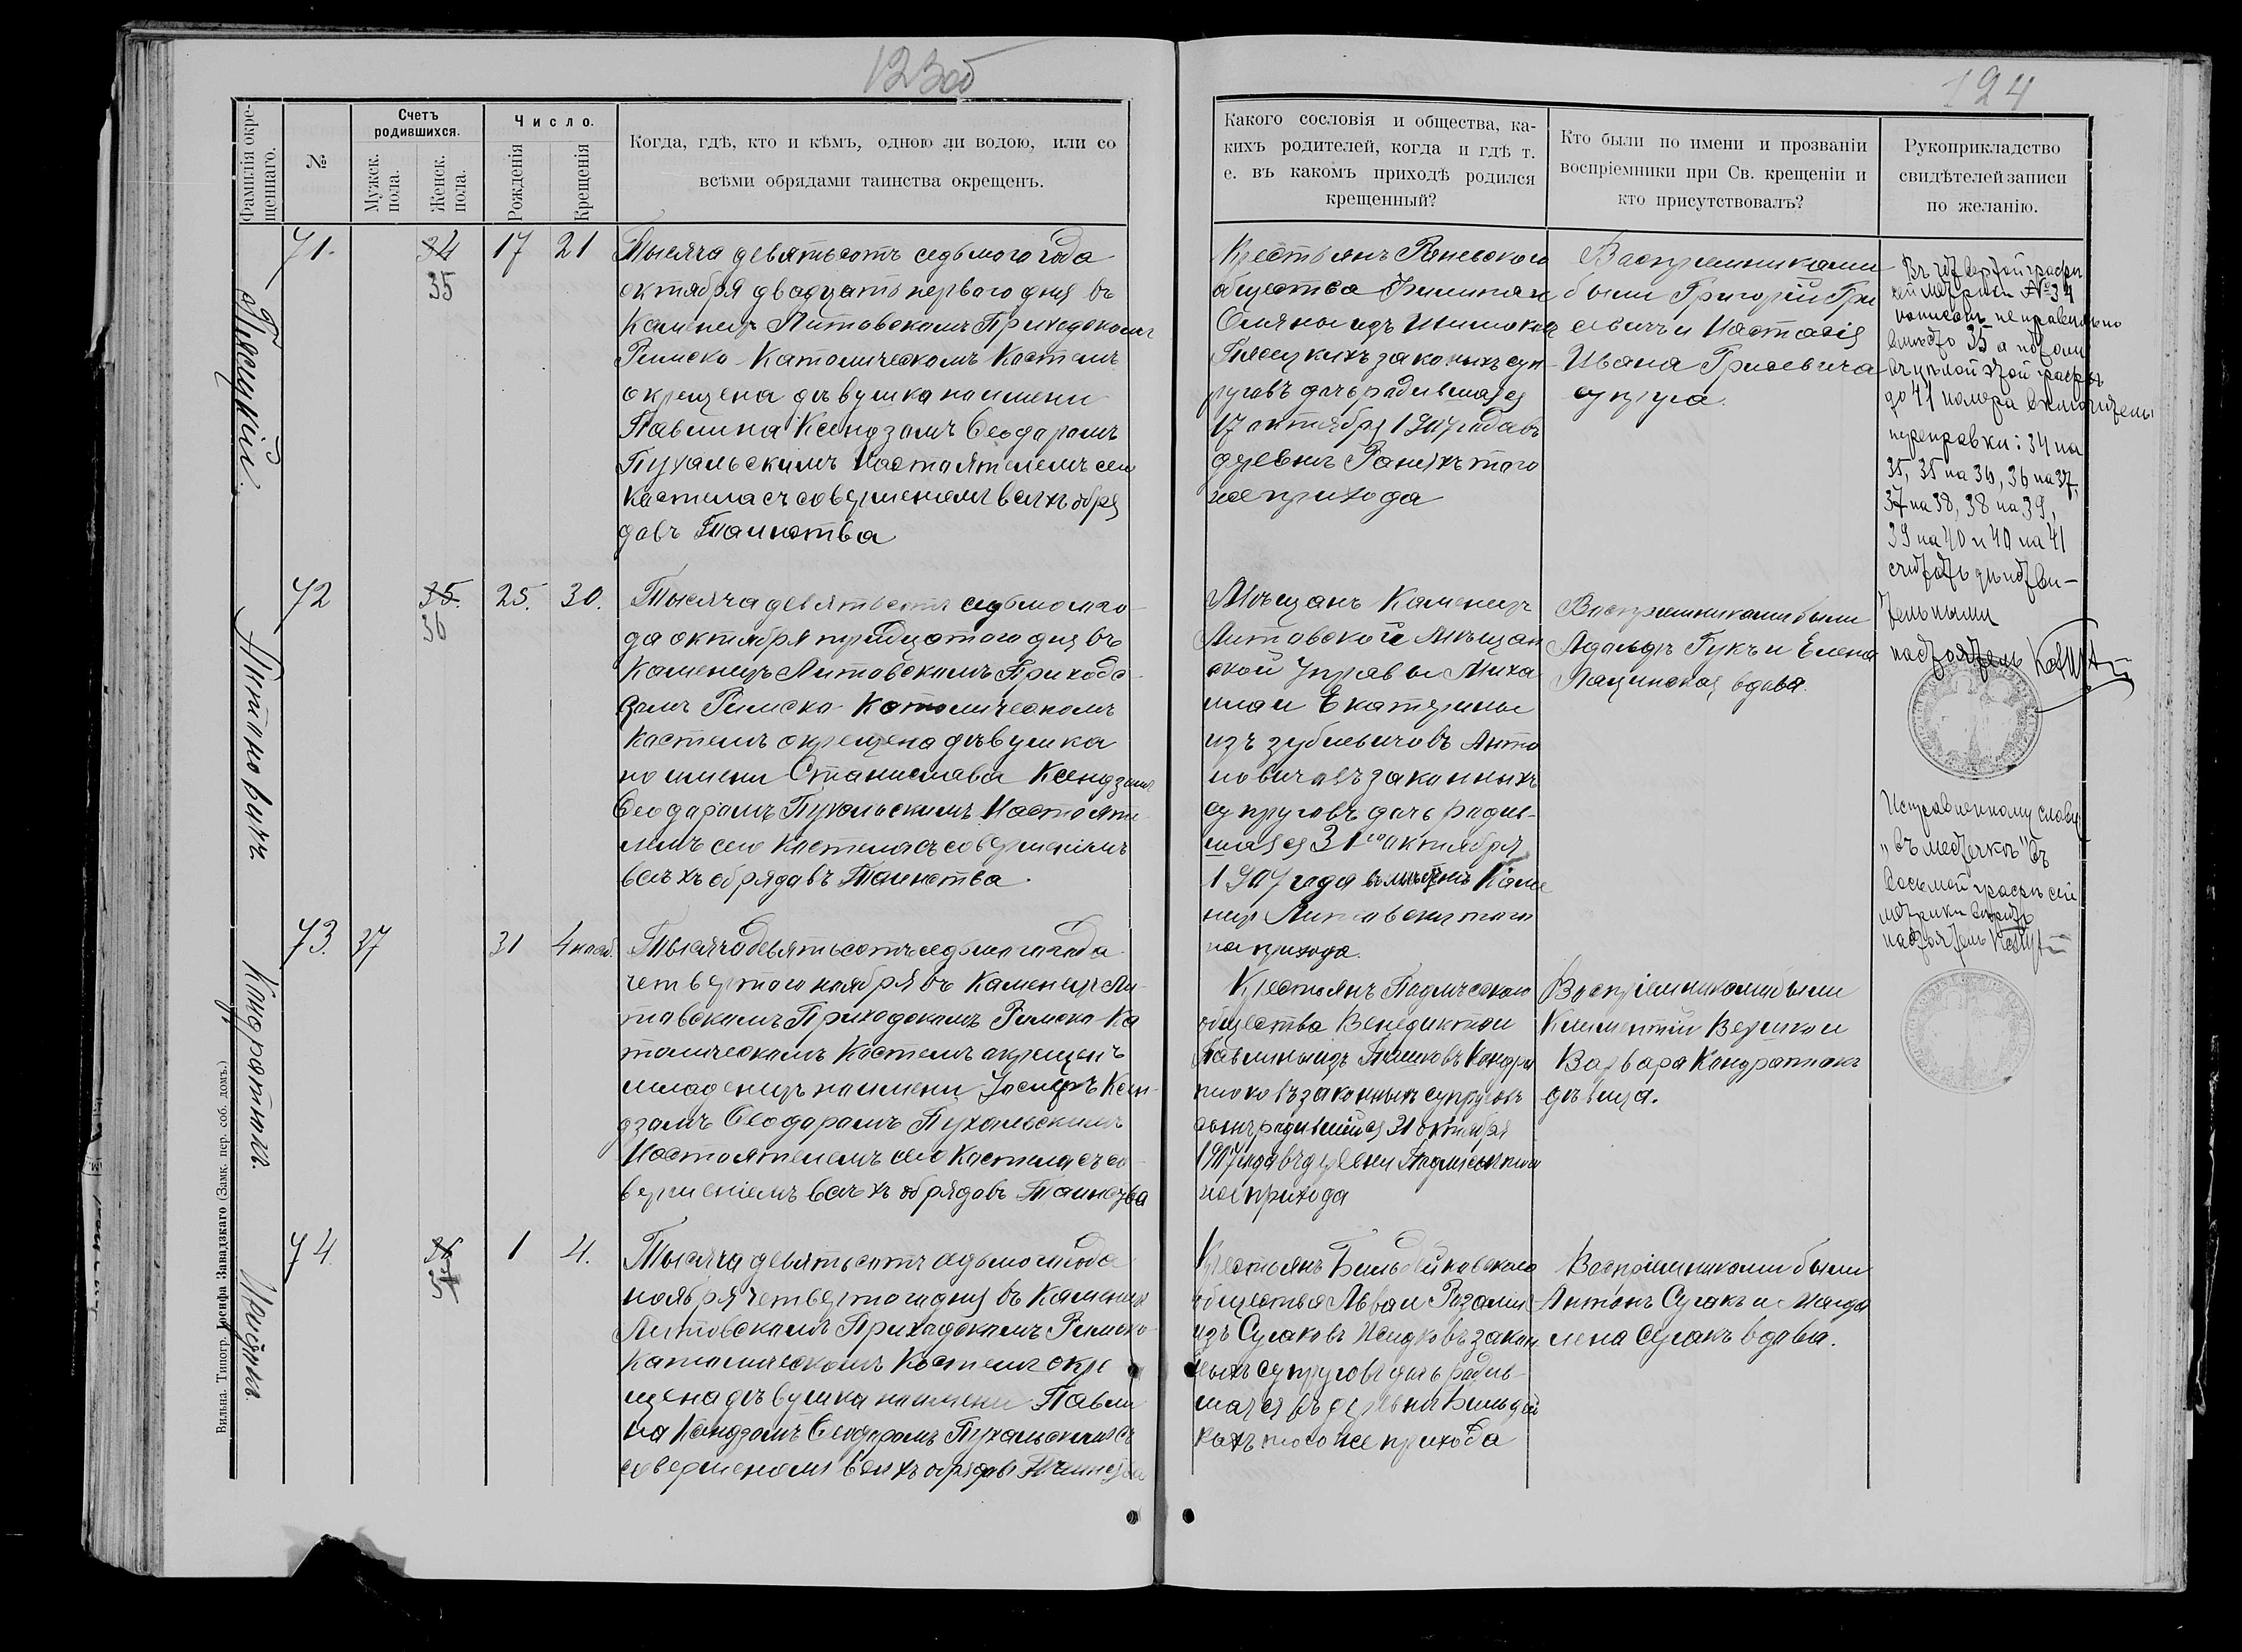 123об
124
Фамилія окре-
щеннаго.
№
Счетъ
родившихся.
Мужск.
пола.
Женск.
пола.
Число.
Рожденія
Крещенія
Когда, гдѣ, кто и кѣмъ, одною ли водою, или со
всѣми обрядами таинства окрещенъ.
Какого сословія и общества, ка-
кихъ родителей, когда и гдѣ т.
е. въ какомъ приходѣ родился
крещенный?
Кто были по имени и прозванію
воспріемники при Св. крещеніи и
кто присутствовалъ?
Рукоприкладство
свидѣтелей записи
по желанію.
Пясецкій.
71.
34
35
17
21
Тысяча девятьсотъ седьмого года
октября двадцать перваго дня въ
Каменецъ Литовскомъ Приходскомъ
Римско-Католическомъ Костелѣ
окрещена дѣвушка по имени
Павлина Ксендзомъ Ѳеодоромъ
Пухальскимъ Настоятелемъ сего
Костела съ совершеніемъ всѣхъ обря
довъ Таинства
Крестьянъ
общества Филипа и
изъ
Пясецкихъ законныхъ суп-
руговъ дочь родившаяся
17 октября 1907 года въ
деревнѣ того
же прихода
Воспріемниками
были Григорій Гри
севичъ и Настасія
Ивана Грисевича
супруга.
Въ четвертой графѣ
сей метрики № 34
написанъ неправильно
вмѣсто 35 а потому
до 41 номера включительно
переправки: 34 на
35, 35 на 36, 36 на 37,
37 на 38, 38 на 39,
39 на 40 и 40 на 41
считать дѣйстви-
тельными
настоятель
Антоновичъ
72
35.
36
25.
30.
Тысяча девятьсотъ седьмого го-
да октября тридцатого дня въ
Каменецъ Литовскомъ Приход
скомъ Римско-Католическомъ
Костелѣ окрещена дѣвушка
по имени Станислава Ксендзомъ
Ѳеодоромъ Пухальскимъ Настояте-
лемъ сего Костела съ совершеніемъ
всѣхъ обрядовъ Таинства.
Мѣщанъ Каменецъ
Литовской Мѣщан
ской Управы Миха
ила и Екатерины
изъ Зубкевичовъ Анто
новичовъ законныхъ
супруговъ дочь родив-
шаяся октября
1907 года въ мѣстечкѣ Каме
нецъ Литовскъ того
же прихода.
Воспріемниками были
Адольфъ Гукъ и Елена
вдова.
Исправленному слову
„въ местечкѣ“ въ
восьмой графѣ сей
метрики вѣрить
настоятель
Кондратюкъ.
73.
37
31
4 нояб.
Тысяча девятьсотъ седьмого года
четвертого ноября въ Каменецъ Ли-
товскомъ Приходскомъ Римско-Ка
толическомъ Костелѣ окрещенъ
младенецъ по имени Іосифъ Ксен-
дзомъ Ѳеодоромъ Пухальскимъ
Настоятелемъ сего Костела съ со-
вершеніемъ всѣхъ обрядовъ Таинства
Крестьянъ
общества Венедикта и
Павлины изъ Кондра
тюковъ законныхъ супруговъ
сынъ родившійся 31 октября
1907 года въ деревни
же прихода
Воспріемниками были
Климентій и
Варвара Кондратюкъ
дѣвица.
74.
36
1
4.
Тысяча девятьсотъ седьмого года
ноября четвертого дня въ Каменецъ
Литовскомъ Приходскомъ Римско-
Католическомъ Костелѣ окре
щена дѣвушка по имени Павли
на Ксендзомъ Ѳеодоромъ Пухальскимъ съ
совершеніемъ всѣхъ обрядовъ Таинства
Крестьянъ
общества Льва и Розаліи
изъ Сугаковъ закон
ныхъ супруговъ дочь родив-
шаяся въ деревнѣ
кахъ того же прихода
Воспріемниками были
Антонъ Сугакъ и Магда
лена Сугакъ вдова.
Вильна. Типогр. Іосифа Завадзкаго (Замк. пер. соб. домъ.)